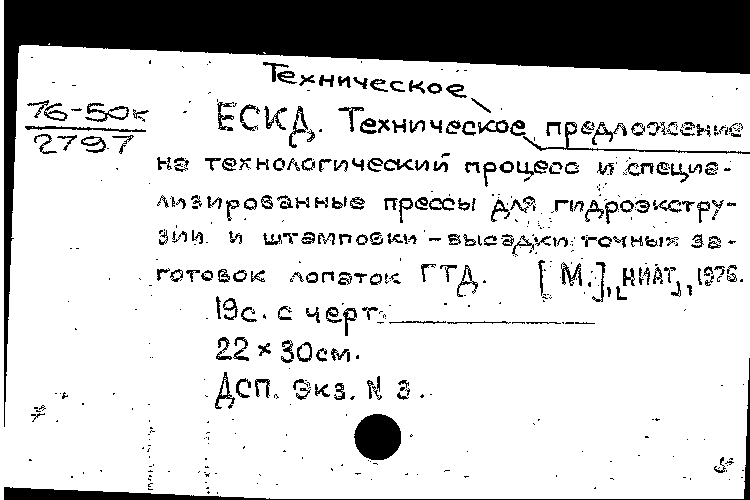 Техническое
76-50к
2797
ЕСКД. Техническое предложение
на технологический процесс и специа-
лизированные прессы для гидроэкстру-
зии и штамповки-высадки точных за-
готовок лопаток ГТД. [М.], [НИАТ], 1976.
19с. с черт.
22 × 30см.
ДСП. Экз. N 3.